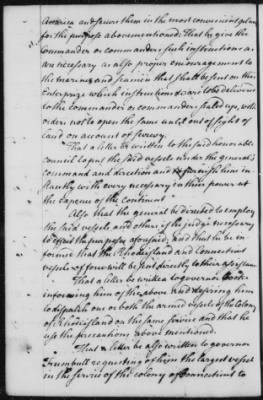 America and secure them in the most convenient place
for the purpose abovementioned: That he give the
Commander or commanders such instructions as
are necessary as also proper encouragement to
the marines and seamen that shall be sent on this
Enterprize which instructions &c are to be delivered
to the commander or commanders sealed up, with
orders not to open the same until out of sight of
Land on account of secrecy.
That a letter be written to the said honorable
council to put the said vessels under the general's
command and direction and to furnish him in-
stantly with every necessary in their power at
the Expence of the Continent
Also that the general be directed to employ
the said vessels and others if he judge necessary
to effect the purposes aforesaid; and that he be in-
formed that the Rhode island and Connecticut
vessels of force will be sent directly to their assistance
That a letter be wrote to governor Cooke
informing him of the above and desiring him
to despatch one or both the armed vessels of the Colony
of Rhode island on the same service and that he
use the precautions above mentioned.
That a letter be also written to governor
Trumbull requesting of him the largest vessel
in the service of the colony of Connecticut to